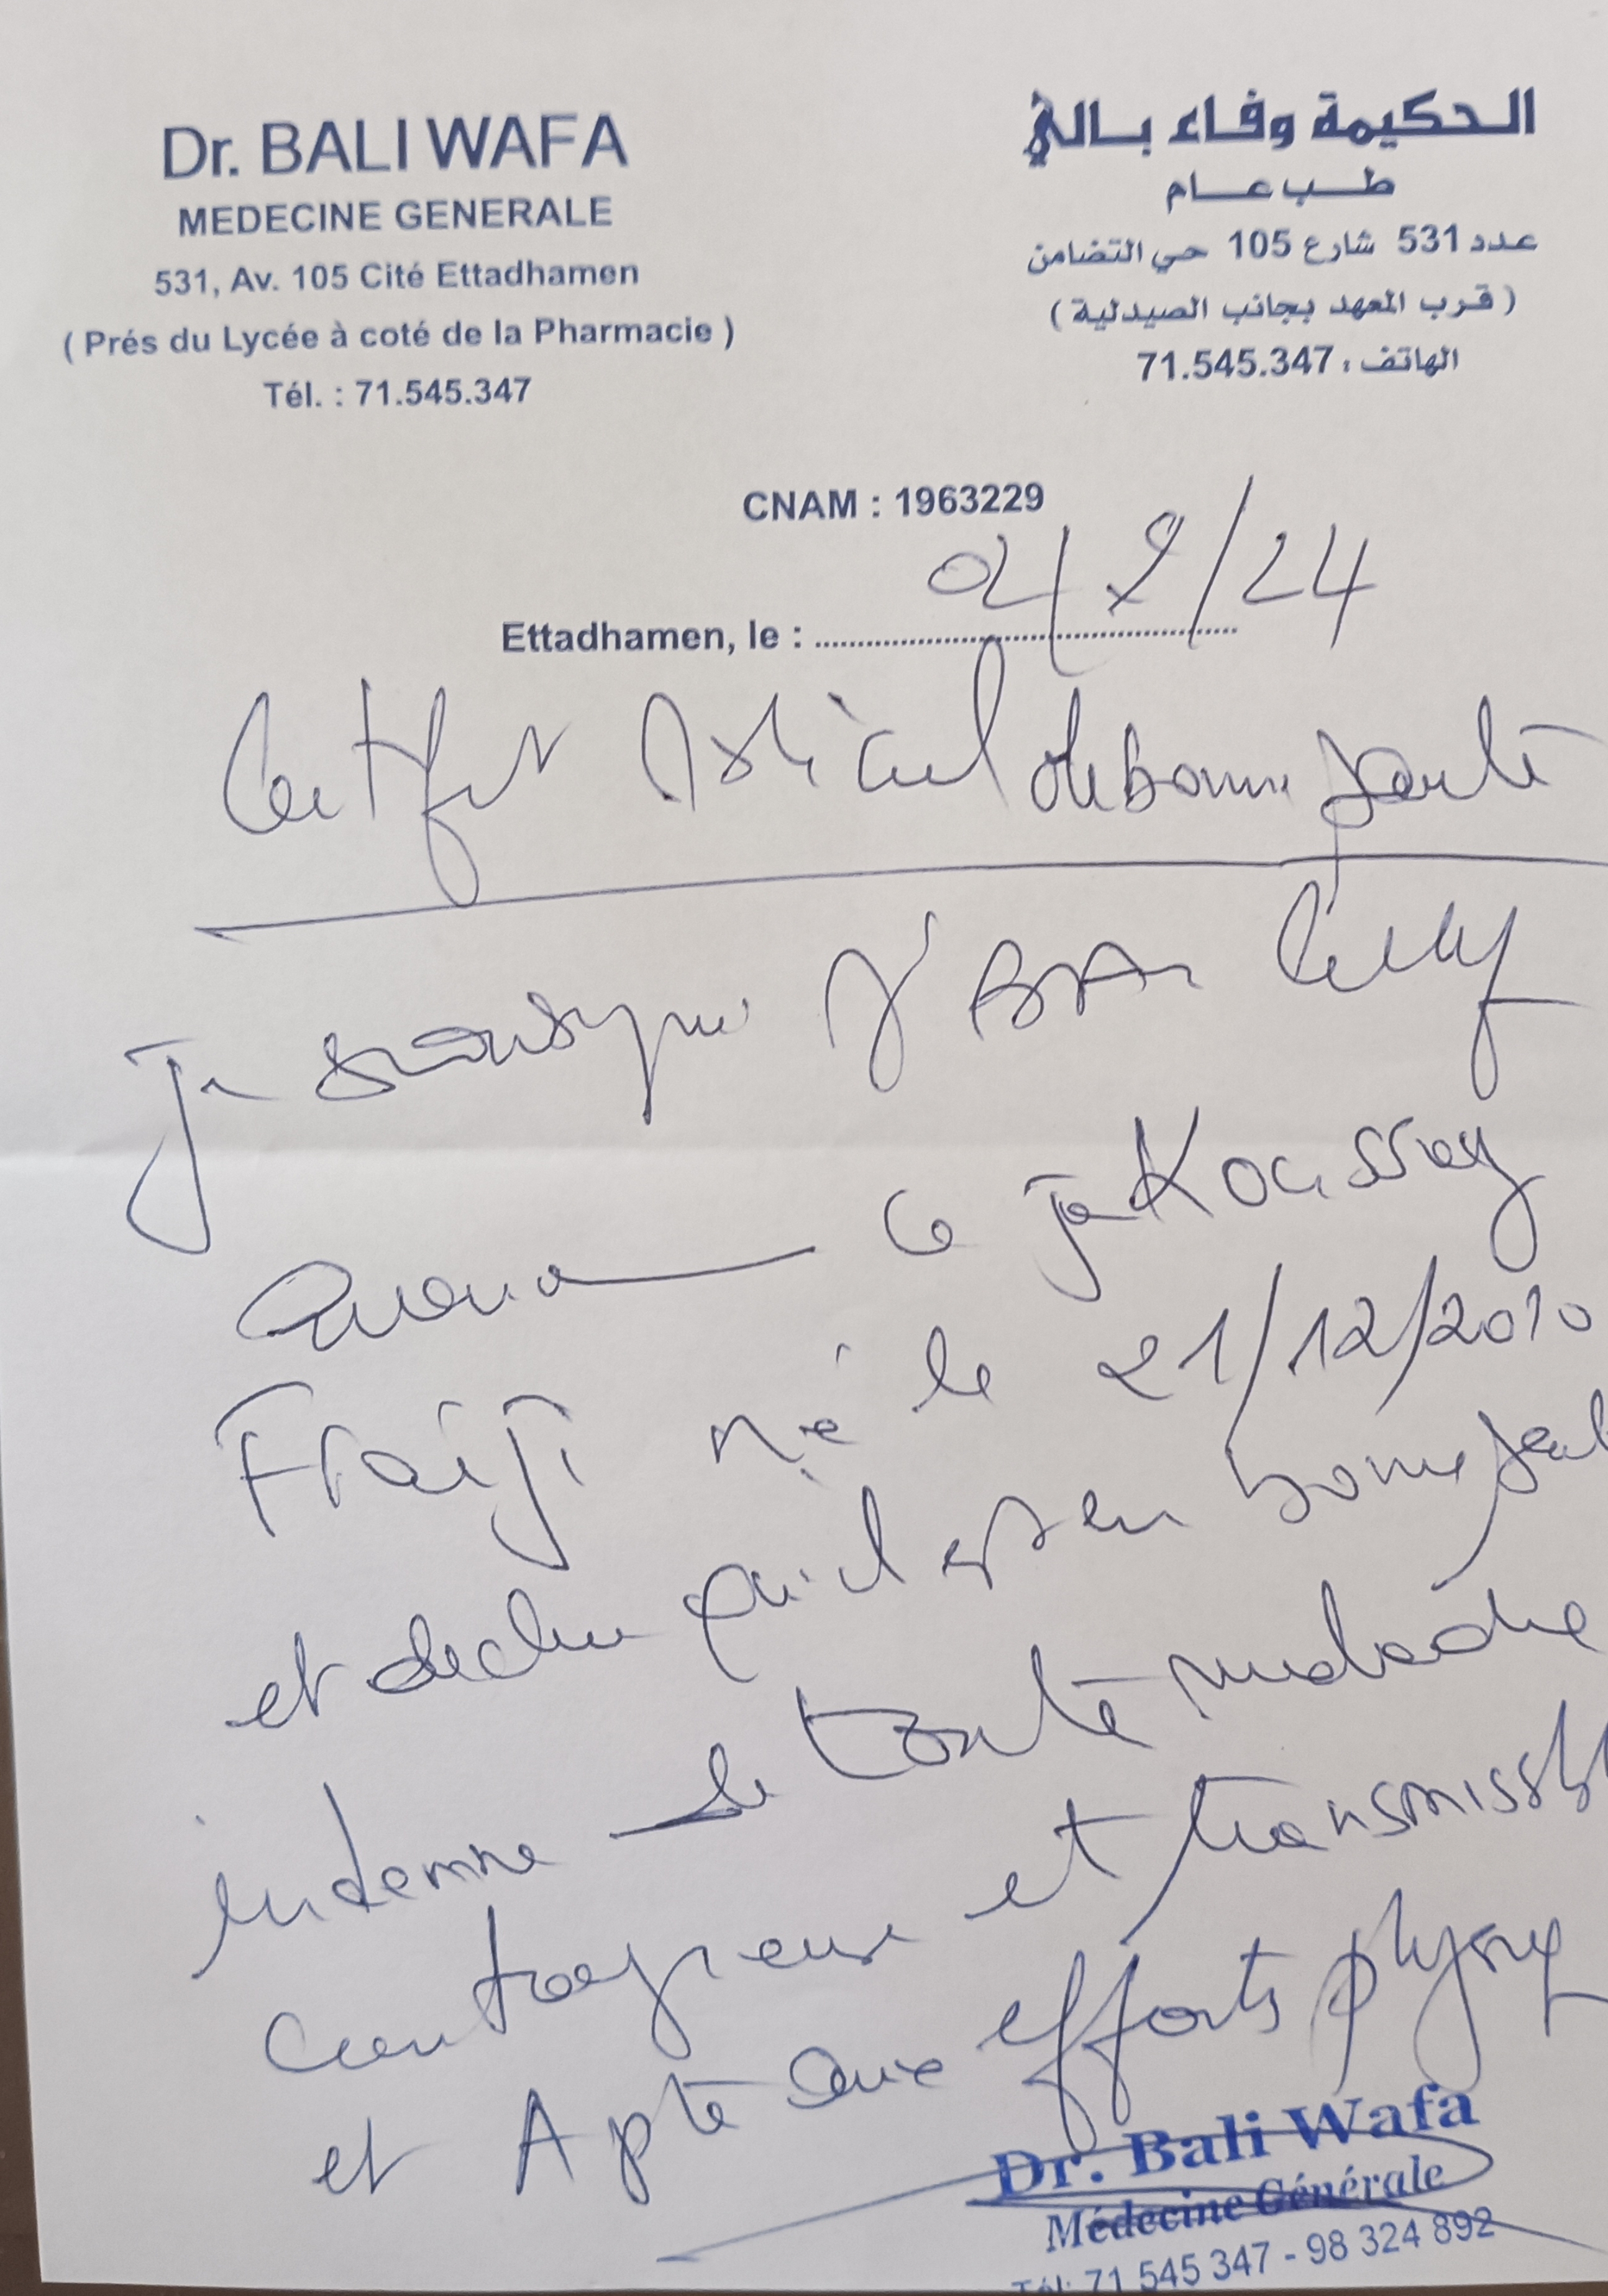 Dr. BALI WAFA
MEDECINE GENERALE
531, Av. 105 Cité Ettadhamen
( Prés du Lycée à coté de la Pharmacie )
Tél. : 71.545.347
الحكيمة وفاء بالي
طب عام
عدد 531 شارع 105 حي التضامن
( قرب المعهد بجانب الصيدلية )
الهاتف : 71.545.347
CNAM : 1963229
Ettadhamen, le : 04/9/24
Certificat Médical de bonne Santé
Je soussigné Dr Bali
ce jr Koussay
Fraiji né le 21/12/2010
et declare qu'il est en bonne
indemne de toute maladie
contagieuse et transmissible
et Apte aux efforts physiq
Dr. Bali Wafa
Médecine Générale
Tél: 71 545 347 - 98 324 892